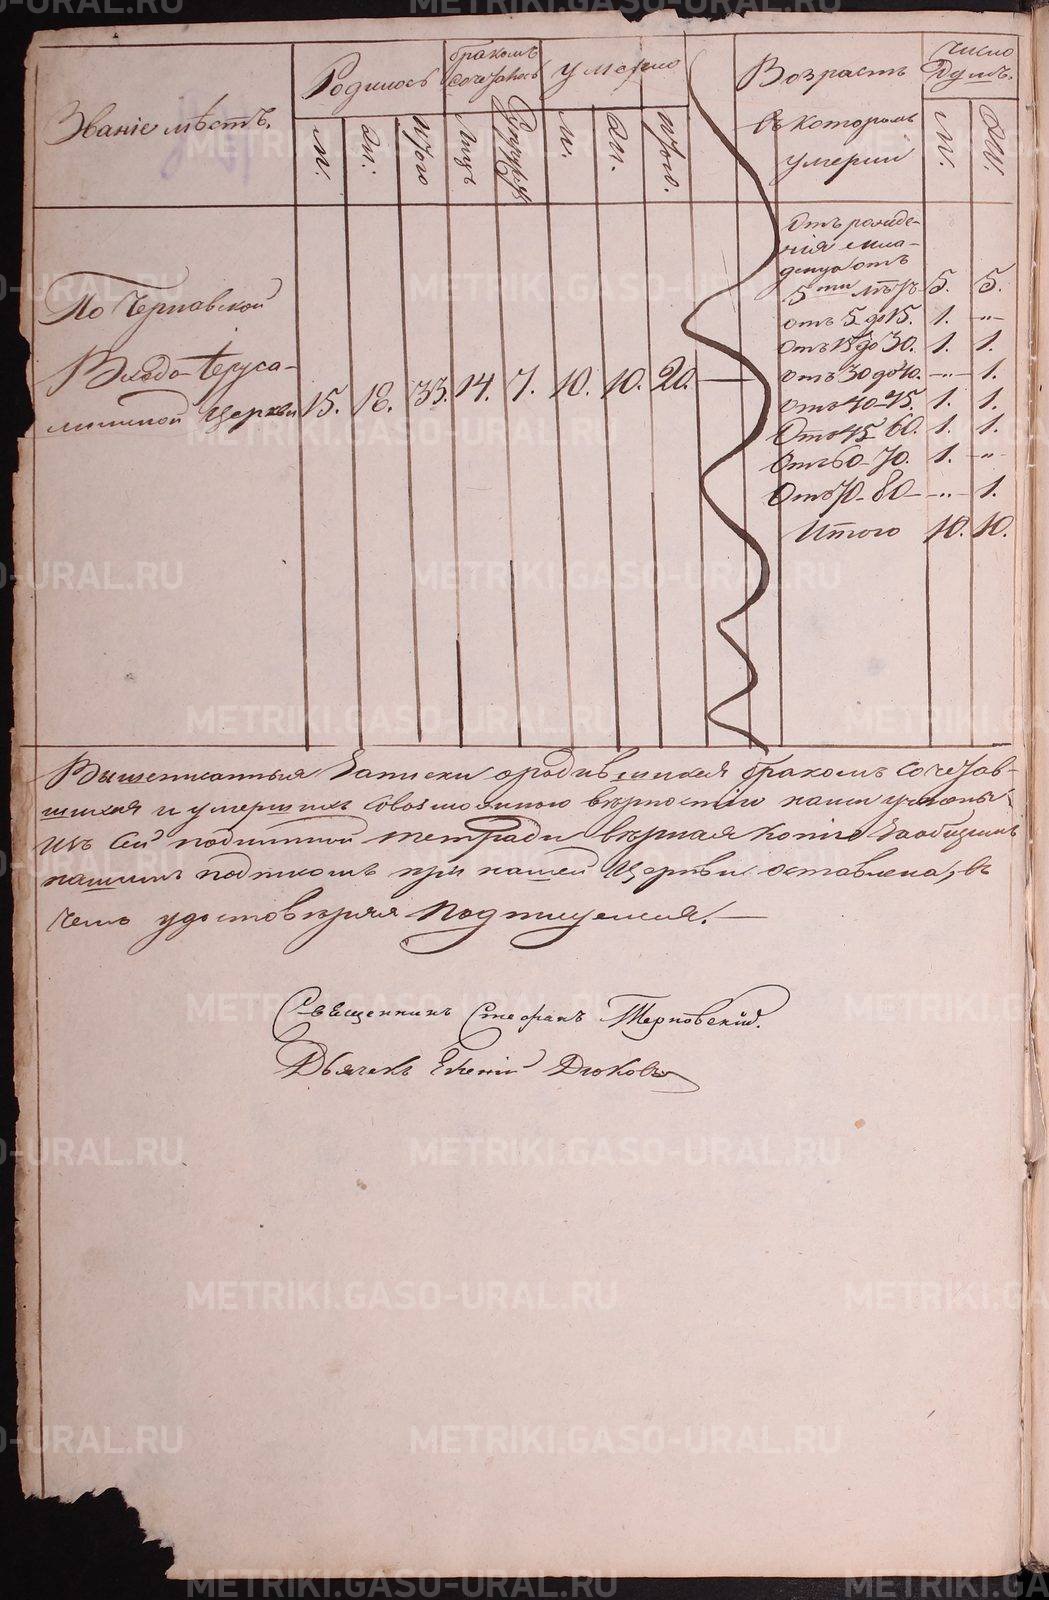 Званіе мѣстъ.
Родилось
бракомъ
сочеталось
умерло
Возрастъ
въ которомъ
умерли
число
Душъ.
м.
ж.
итого
Лицъ
м.
ж.
итого.
м.
ж.
Отъ рожде-
нія мла-
денца отъ
5ти лѣтъ 5. 5.
отъ 5 до 15. 1. –„–
отъ 15 до 30. 1. 1.
отъ 30 до 40. –„– 1.
отъ 40-45. 1. 1.
Отъ 45 60. 1. 1.
Отъ 60-70. 1. –„–
Отъ 70-80 –„– 1.
Итого 10. 10.
По Чернавской
Входо-Іеруса-
лимской Церкви 15. 18. 33. 14. 7. 10. 10. 20.
Вышеписанныя Записки о родившихся бракомъ сочетав-
шихся и умершихъ со возможною вѣрностію нами учинены
изъ сей подлинной тетради вѣрная копія за общимъ
нашимъ подписомъ при нашей Церкви оставлена, въ
чемъ удостовѣряя Подписуемся.
Священникъ Стефанъ Терновскій.
Дьячекъ Дюковъ
METRIKI.GASO-URAL.RU